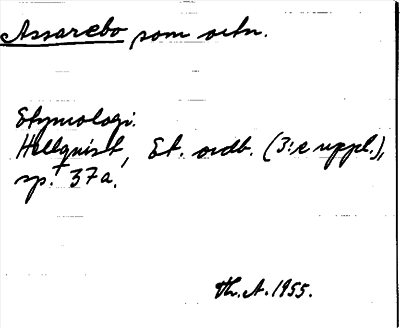 Assarebo som ortn.
Etymologi.
Hellquist, Et. ordb. (3:e uppl.),
sp. 37a.
Th. A. 1955.